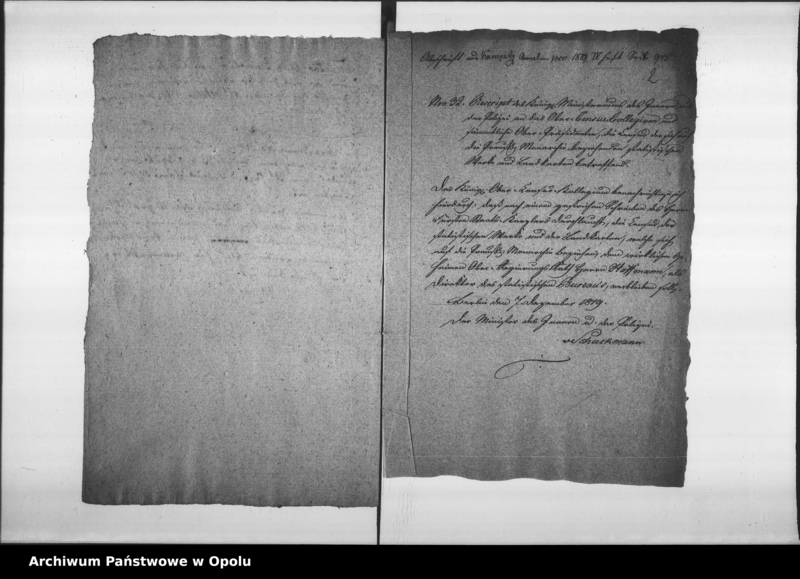 Abschrift aus Kamptz Annalen pro 1819 IV Heft Seite 9
2
Nro 32. Rescript des Königl. Ministeriums des Innern u.
der Polizei an das Ober-Censur-Collegium und
sämmtliche Ober-Präsidenten, die Censur der sich auf
die Preuß. Monarchie beziehenden statistischen
Werke und Landkarten betreffend.
Das Königl. Ober-Censur-Kollegium benachrichtige ich
hierdurch, daß nach einem gestrigen Schreiben des Herrn
Fürsten Staats-Kanzlers Durchlaucht, die Censur der
statistischen Werke und der Landkarten, welche sich
auf die Preuß. Monarchie beziehen, dem wirklichen Ge-
heimen Ober-Regierungs Rath Herrn Hoffmann, als
Direktor des statistischen Bureau's, verbleiben soll.
Berlin den 7. Dezember 1819.
Der Minister des Innern u. der Polizei.
v. Schuckmann
Archiwum Państwowe w Opolu